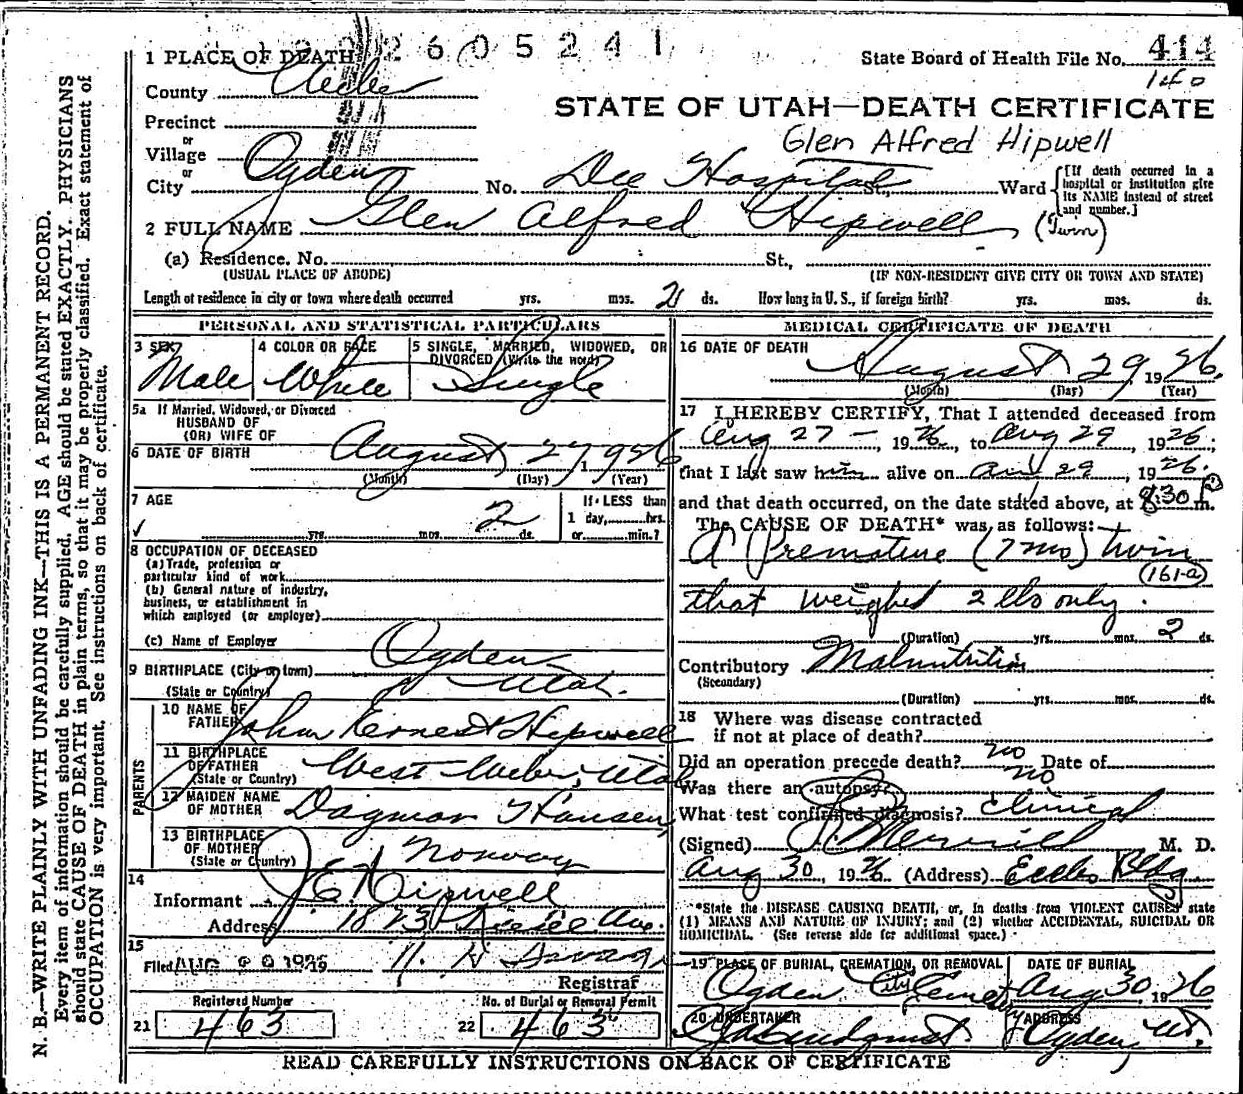 2605241
1 PLACE OF DEATH
State Board of Health File No. 414
140
County Weber
STATE OF UTAH—DEATH CERTIFICATE
Precinct
Glen Alfred Hipwell
or
Village
or
City Ogden No. Dee Hospital St., Ward
[If death occurred in a hospital or institution give its NAME instead of street and number.]
2 FULL NAME Glen Alfred Hipwell (Twin)
(a) Residence. No. St.,
(USUAL PLACE OF ABODE) (IF NON-RESIDENT GIVE CITY OR TOWN AND STATE)
Length of residence in city or town where death occurred yrs. mos. 2 ds. How long in U. S., if foreign birth? yrs. mos. ds.
PERSONAL AND STATISTICAL PARTICULARS
3 SEX 4 COLOR OR RACE 5 SINGLE, MARRIED, WIDOWED, OR
DIVORCED (Write the word)
Male White Single
5a If Married, Widowed, or Divorced
HUSBAND OF
(OR) WIFE OF
6 DATE OF BIRTH August 27 1926
(Month) (Day) (Year)
7 AGE If LESS than
yrs. mos. 2 ds. 1 day, hrs.
or min.?
8 OCCUPATION OF DECEASED
(a) Trade, profession or
particular kind of work
(b) General nature of industry,
business, or establishment in
which employed (or employer)
(c) Name of Employer
9 BIRTHPLACE (City or town) Ogden
(State or Country) Utah.
PARENTS
10 NAME OF
FATHER John Ernest Hipwell
11 BIRTHPLACE
OF FATHER West Weber, Utah
(State or Country)
12 MAIDEN NAME
OF MOTHER Dagmar Hansen
13 BIRTHPLACE
OF MOTHER Norway
(State or Country)
14
Informant J E Hipwell
Address 1823 Ave.
15
Filed AUG 30 1926 19
Registrar
Registered Number No. of Burial or Removal Permit
21 463 22 463
MEDICAL CERTIFICATE OF DEATH
16 DATE OF DEATH
August 29, 1926.
(Month) (Day) (Year)
17 I HEREBY CERTIFY, That I attended deceased from
Aug 27 - , 1926, to Aug 29 , 1926;
that I last saw him alive on Aug 29 , 1926.
and that death occurred, on the date stated above, at 8:30 P m.
The CAUSE OF DEATH* was as follows:
A Premature (7 mo) twin
(161-a)
that weighed 2 lbs only.
(Duration) yrs. mos. 2 ds.
Contributory Malnutrition
(Secondary)
(Duration) yrs. mos. ds.
18 Where was disease contracted
if not at place of death?
Did an operation precede death? no Date of
Was there an autopsy? no
What test confirmed diagnosis? clinical
(Signed) Merrill M. D.
Aug 30, 1926 (Address) Eccles Bldg
*State the DISEASE CAUSING DEATH, or, in deaths from VIOLENT CAUSES state
(1) MEANS AND NATURE OF INJURY; and (2) whether ACCIDENTAL, SUICIDAL OR
HOMICIDAL. (See reverse side for additional space.)
19 PLACE OF BURIAL, CREMATION, OR REMOVAL DATE OF BURIAL
Ogden City Cemetery Aug 30, 1926
20 UNDERTAKER ADDRESS
Lindquist Ogden, Ut.
READ CAREFULLY INSTRUCTIONS ON BACK OF CERTIFICATE
N. B.—WRITE PLAINLY WITH UNFADING INK—THIS IS A PERMANENT RECORD.
Every item of information should be carefully supplied. AGE should be stated EXACTLY. PHYSICIANS
should state CAUSE OF DEATH in plain terms, so that it may be properly classified. Exact statement of
OCCUPATION is very important. See instructions on back of certificate.